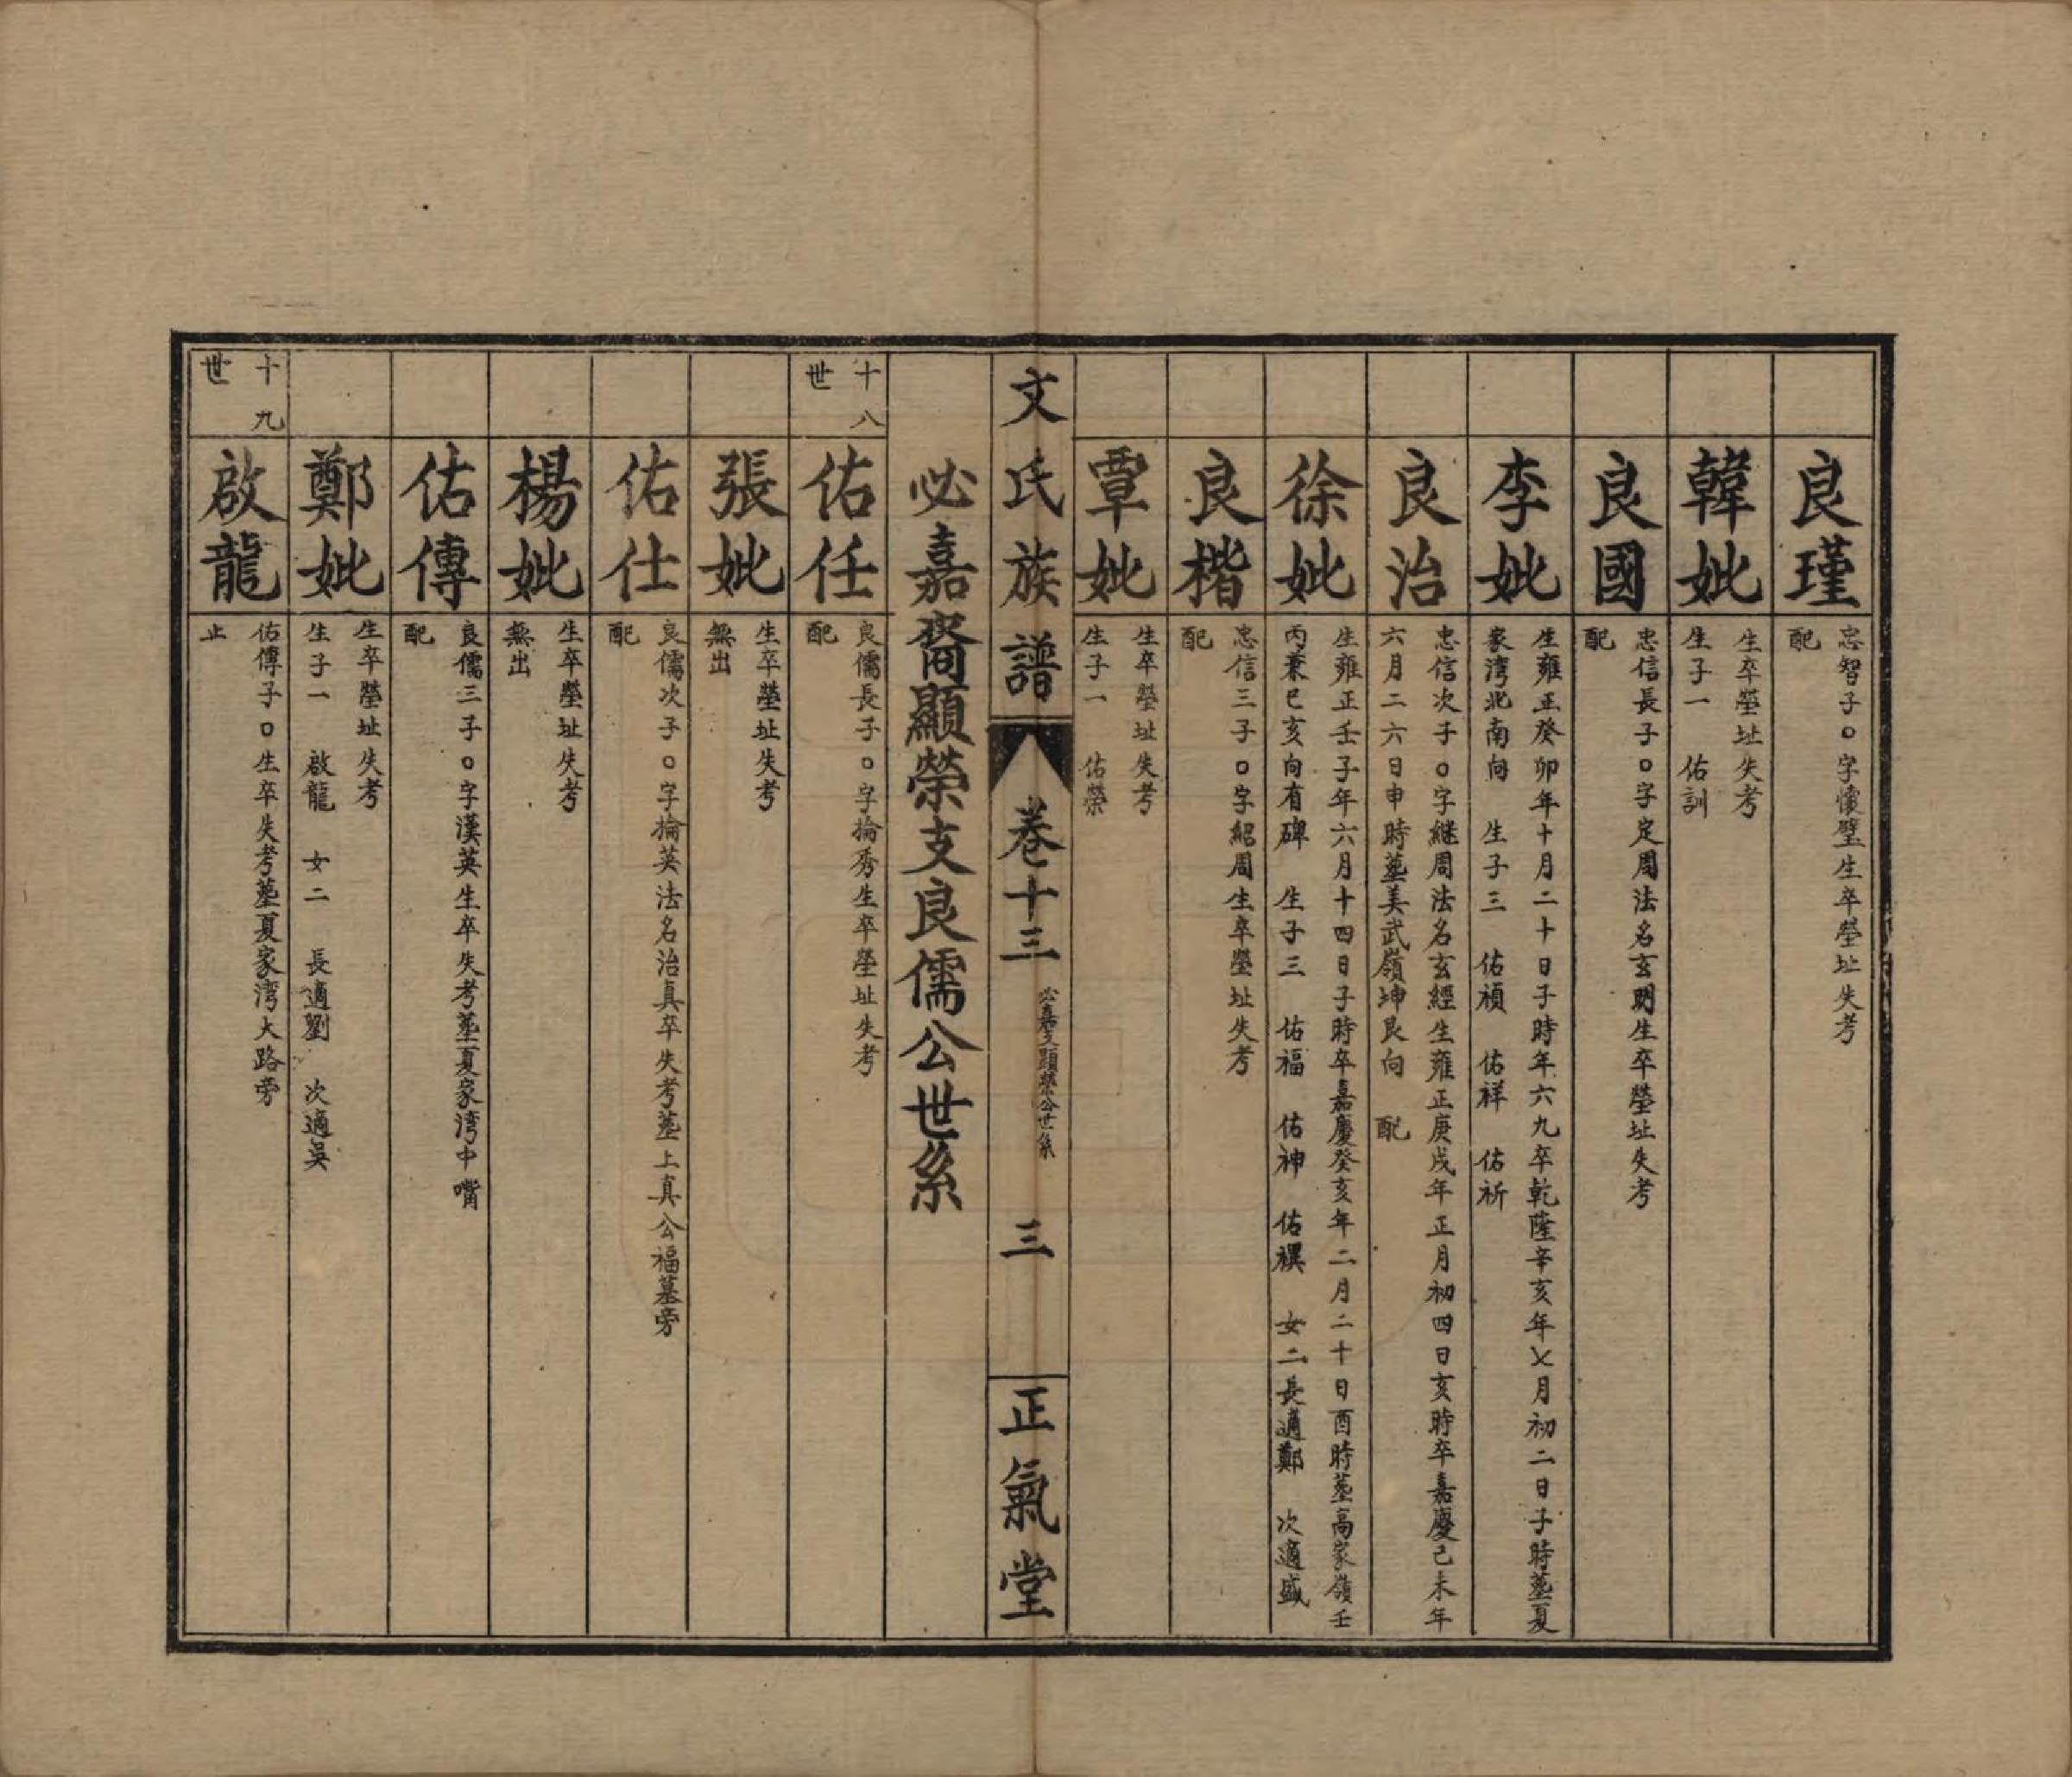 良瑾
忠智子○字懷璧生卒塋址失考
配
韓妣
生卒塋址失考
生子一　佑訓
良國
忠信長子○字定周法名玄明生卒塋址失考
配
李妣
生雍正癸卯年十月二十日子時年六九卒乾隆辛亥年乂月初二日子時墓夏
家湾北南向　生子三　佑禎　佑祥　佑祈
良治
忠信次子○字継周法名玄經生雍正庚戌年正月初四日亥時卒嘉慶己未年
六月二六日申時墓美武嶺坤艮向　配
徐妣
生雍正壬子年六月十四日子時卒嘉慶癸亥年二月二十日酉時墓高家嶺壬
丙兼巳亥向有碑　生子三　佑福　佑神　佑禩　女二長適鄭　次適盛
良楷
忠信三子○字紹周生卒塋址失考
配
覃妣
生卒塋址失考
生子一　佑榮
文氏族譜　卷十三　必嘉支顯榮公世系　三　正氣堂
必嘉裔顯榮支良儒公世系
十八世
佑任
良儒長子○字掄秀生卒塋址失考
配
張妣
生卒塋址失考
無出
佑仕
良儒次子○字掄英法名治真卒失考墓上真公福墓旁
配
楊妣
生卒塋址失考
無出
佑傳
良儒三子○字漢英生卒失考墓夏家湾中嘴
配
鄭妣
生卒塋址失考
生子一　啟龍　女二　長適劉　次適吳
十九世
啟龍
佑傳子○生卒失考墓夏家湾大路旁
止